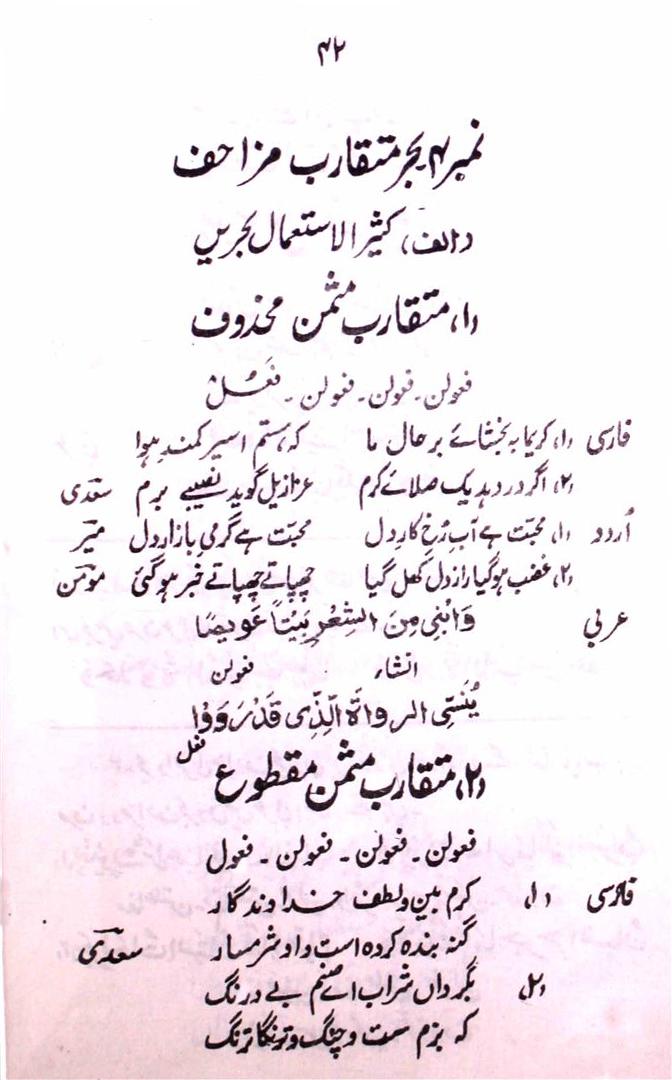 ۴۲
نمبر۴ بحر متقارب مزاحف
(الف) کثیر الاستعمال بحریں
(۱) متقارب مثمن محذوف
فعولن۔ فعولن۔ فعولن ۔ فَعُلْ
فارسی (۱) کریما بہ بخشائے بر حال ما کہ ہستم اسیر کمند ہوا
(۲) اگر در دہد یک صلائے کرم عزازیل گوید نصیبے برم سعدی
اُردو (۱) محبّت ہے آبِ رُخِ کارِ دل محبّت ہے گرمیِ بازارِ دل میر
(۲) غضب ہو گیا رازِ دل کھل گیا چھپاتے چھپاتے خبر ہو گئی مومن
عربی وَابْنِی مِنَ الشِعْرِ بَیْتاً عَوِیصًا
انشاء فعولن
یُنَسِّی الرواۃَ الَّذِی قَدْ رَوَوْا
فعل
(۲) متقارب مثمن مقطوع
فعولن ۔ فعولن ۔ فعولن ۔ فعول
فارسی (۱) کرم بین و لطف خداوندگار
گنہ بندہ کردہ است و او شرمسار سعدی
(۲) بگرداں شراب اے صنم بے درنگ
کہ بزم ست و چنگ و ترنگا ترنگ